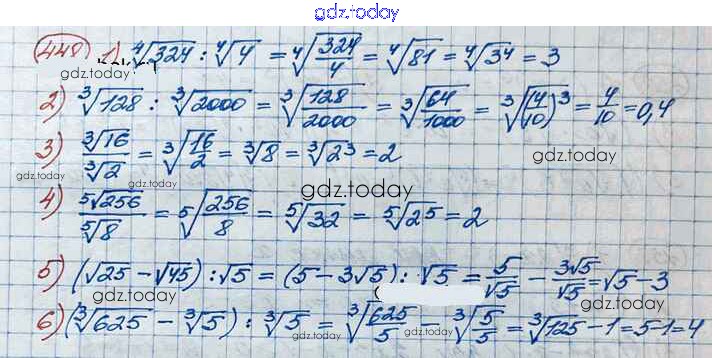 gdz.today
448) 1) ⁴√324 : ⁴√4 = ⁴√(324/4) = ⁴√81 = ⁴√3⁴ = 3
gdz.today
2) ³√128 : ³√2000 = ³√(128/2000) = ³√(64/1000) = ³√(4/10)³ = 4/10 = 0,4
3) ³√16/³√2 = ³√(16/2) = ³√8 = ³√2³ = 2
gdz.today
gdz.today gdz.today
gdz.today
4) ⁵√256/⁵√8 = ⁵√(256/8) = ⁵√32 = ⁵√2⁵ = 2
5) (√25 - √45) : √5 = (5 - 3√5) : √5 = 5/√5 - 3√5/√5 = √5 - 3
gdz.today gdz.today
6) (³√625 - ³√5) : ³√5 = ³√(625/5) - ³√(5/5) = ³√125 - 1 = 5-1 = 4
gdz.today